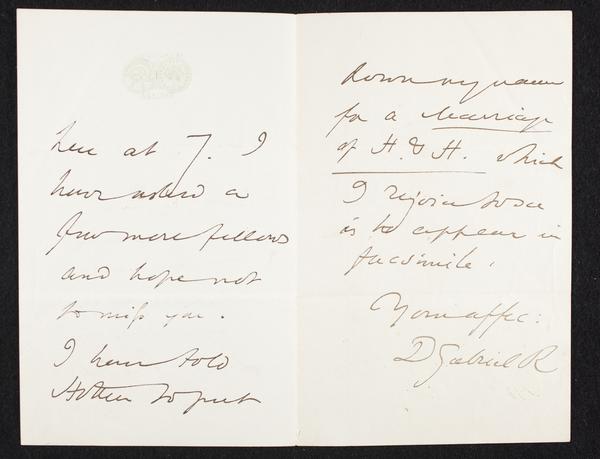 here at 7. I
have asked a
few more fellows
and hope not
to miss you.
I have told
Hotten to put
down my name
for a Marriage
of H. & H. which
I rejoice to see
is to appear in
facsimile.
Your affec:
D Gabriel R